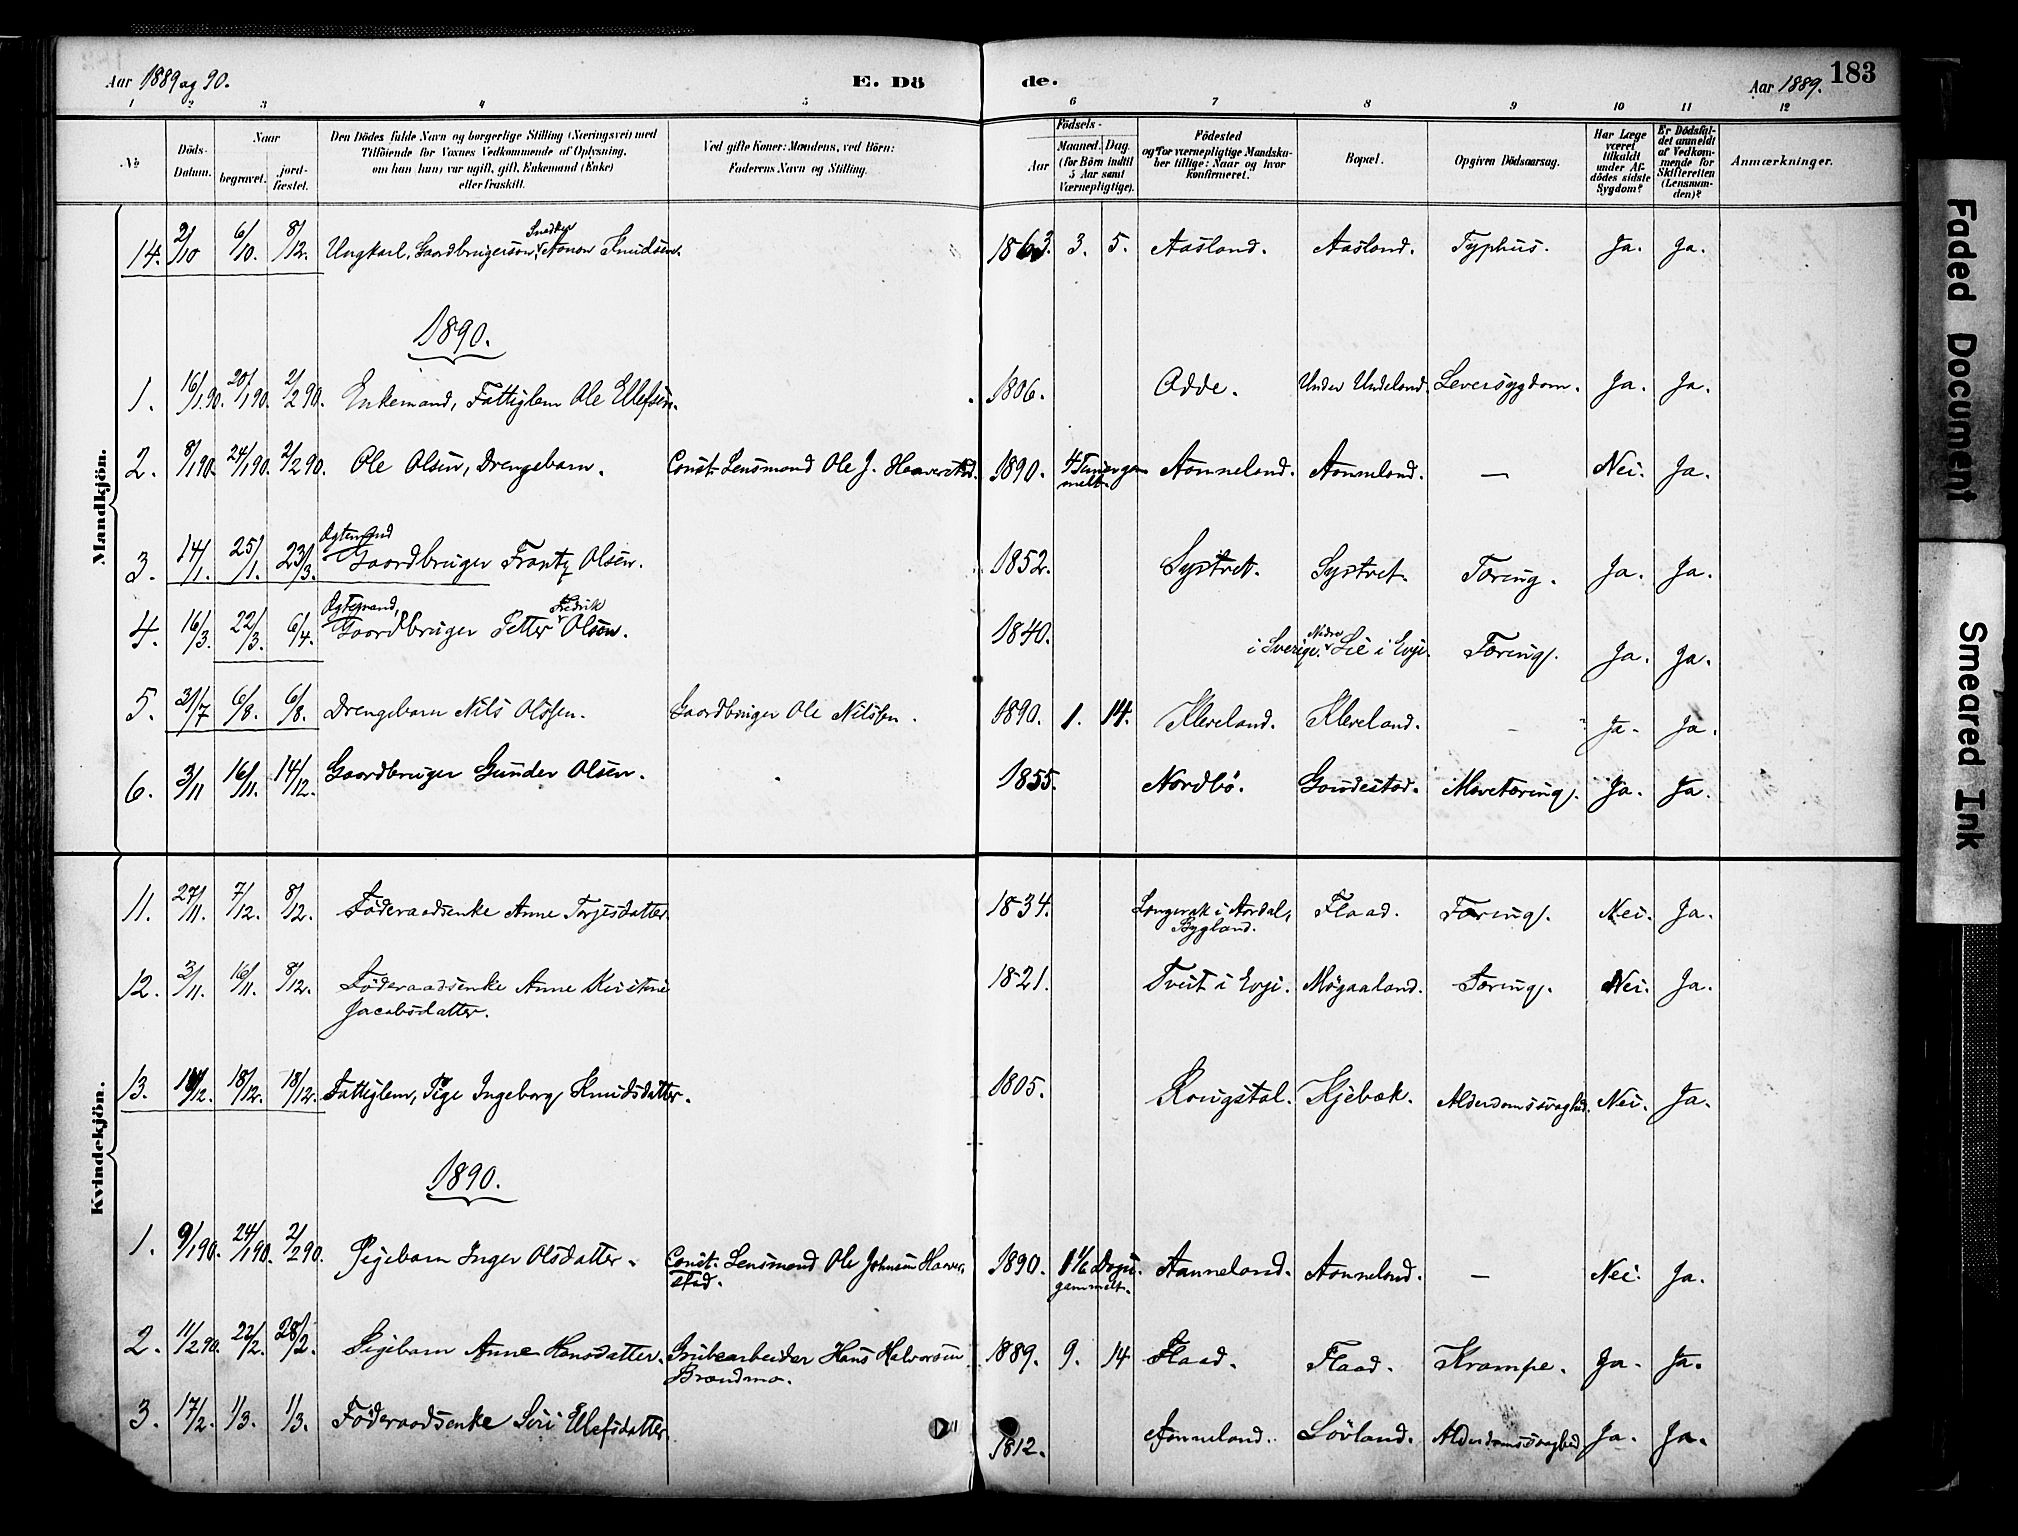 Aar 1889 og 90. E. Dö de. Aar 1889. 183
1 2 3 4 5 6 7 8 9 10 11 12
No
Döds-Datum.
Naar
begravet.
jord-fæstet.
Den Dödes fulde Navn og borgerlige Stilling (Næringsvei) med
Tilföiende for Voxnes Vedkommende af Oplysning,
om han (hun) var ugift, gift, Enkemand (Enke)
eller fraskilt.
Ved gifte Koner: Mandens, ved Börn:
Faderens Navn og Stilling.
Födsels-
Aar
Maaned. Dag.
(for Börn indtil
5 Aar samt
Værnepligtige).
Födested
og for værnepligtige Mandska-
ber tillige: Naar og hvor
konfirmeret.
Bopæl.
Opgiven Dödsaarsag.
Har Læge
været
tilkaldt
under Af-
dödes sidste
Sygdom?
Er Dödsfal-
det anmeldt
af Vedkom-
mende for
Skifteretten
(Lensman-
den)?
Anmærkninger.
Mandkjön.
Snedker
14. 2/10 6/10. 8/12. Ungkarl, Gaardbrugerson, Aanon Knudsen. 1863. 3. 5. Aasland. Aasland. Typhus. Ja. Ja.
1890.
1. 16/1 90. 20/1 90. 2/2 90. Enkemand, Fattiglem Ole Ellefsen. 1806. Odde. Under Uueland. Leversygdom. Ja. Ja.
2. 8/1 90. 24/1 90. 2/2 90. Ole Olsen, Drengebarn. Const. Lensmand Ole J. Haaverstad. 1890. 4 Timer gammelt. Aanneland. Aanneland. — Nei. Ja.
Ægtemand
3. 14/1. 25/1. 23/3. Gaardbruger Frantz Olsen. 1852. Systvet. Systvet. Tæring. Ja. Ja.
Ægtemand, Fredrik
4. 16/3. 22/3. 6/4. Gaardbruger Petter Olsen. 1840. i Sverige. Nedre Lie i Evje. Tæring. Ja. Ja.
5. 31/7 6/8. 6/8. Drengebarn Nils Olssen. Gaardbruger Ole Nilssen. 1890. 1. 14. Kleveland. Kleveland. - Ja. Ja.
6. 3/11 16/11. 14/12. Gaardbruger Gunder Olsen. 1855. Nordbö. Gaudestad. Mavetæring. Ja. Ja.
Kvindekjön.
11. 27/11. 7/12. 8/12. Föderaadsenke Anne Torjesdatter 1834. Langerak i Aardal, Bygland. Flaad. Tæring. Nei. Ja.
12. 3/11. 16/11. 8/12. Föderaadsenke Anne Kristine
Jacobsdatter. 1821. Tveit i Evje. Mögaaland. Tæring. Nei. Ja.
13. /12. 18/12. 18/12. Fattiglem, Pige Ingeborg Knudsdatter. 1805. Kjebæk. Alderdomssvaghed. Nei. Ja.
1890.
1. 9/1 90. 24/1 90. 2/2 90. Pigebarn Inger Olsdatter. Const. Lensmand Ole Johnsen Haaver-
stad. 1890. Dage gammelt. Aanneland. Aanneland. — Nei. Ja.
2. 11/2 90. 22/2. 28/2. Pigebarn Anne Hansdatter. Grubearbeider Hans Halvorsen
Brændmo. 1889. 9. 14 Flaad. Flaad. Krampe. Ja. Ja.
3. 17/2. 1/3. 1/3. Föderaadsenke Siri Ellefsdatter. 1812. Aanneland. Lövland. Alderdomssvaghed Ja. Ja.
Faded Document
Smeared Ink